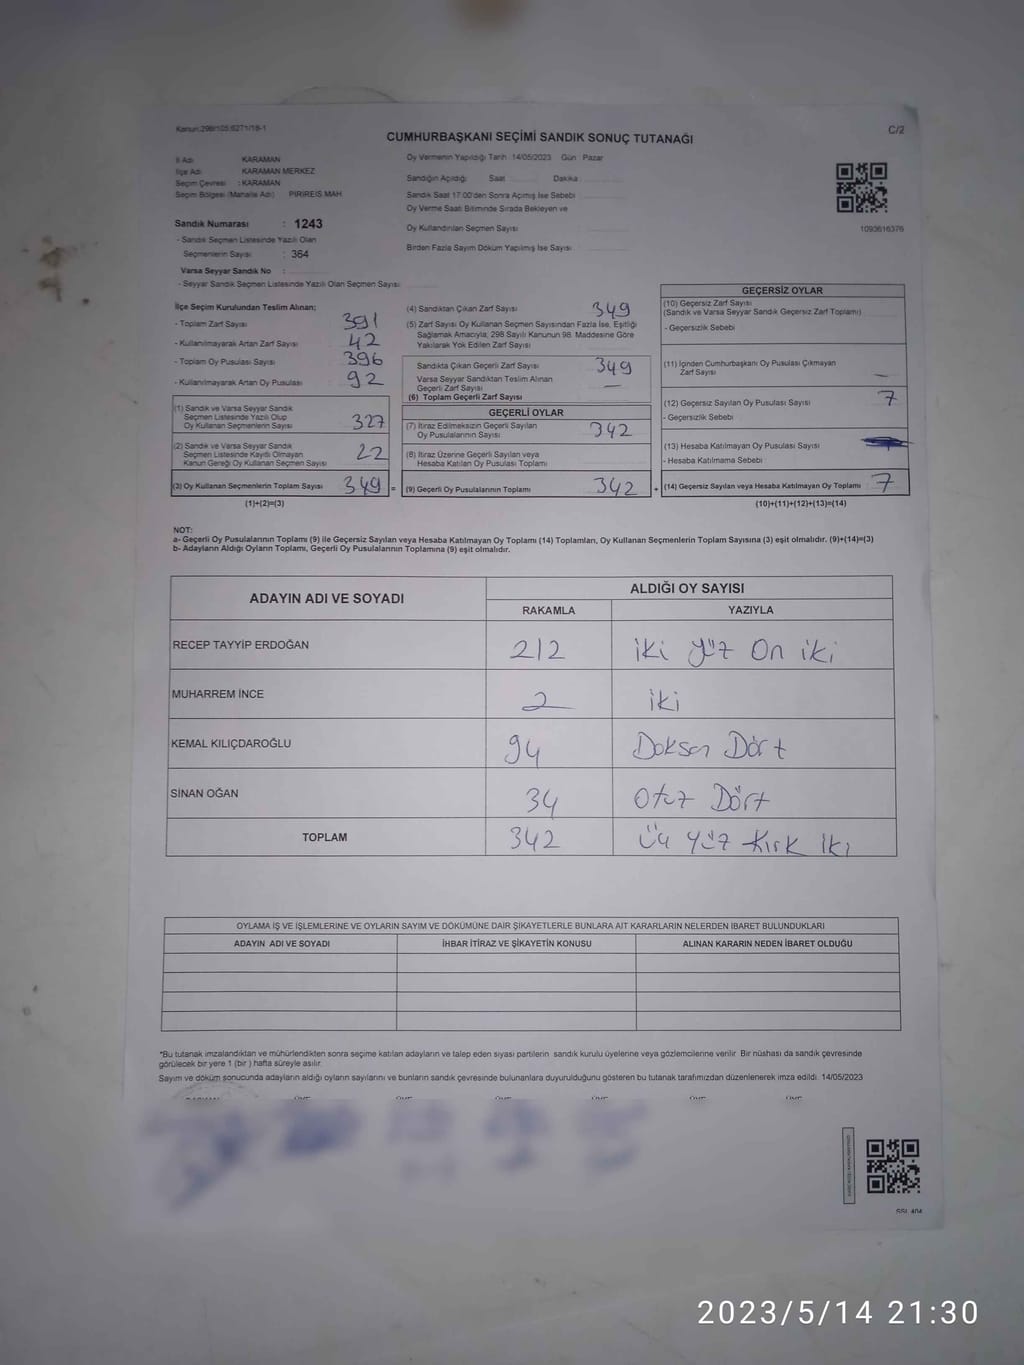 Kanun:298/105:6271/18-1
CUMHURBAŞKANI SEÇİMİ SANDIK SONUÇ TUTANAĞI
C/2
İl Adı : KARAMAN
İlçe Adı : KARAMAN MERKEZ
Seçim Çevresi : KARAMAN
Seçim Bölgesi (Mahalle Adı) : PİRİREİS MAH
Oy Vermenin Yapıldığı Tarih 14/05/2023 Gün Pazar
Sandığın Açıldığı Saat Dakika
Sandık Saat 17:00'den Sonra Açılmış İse Sebebi
Oy Verme Saati Bitiminde Sırada Bekleyen ve
Oy Kullandırılan Seçmen Sayısı
Birden Fazla Sayım Döküm Yapılmış İse Sayısı
1093616376
Sandık Numarası : 1243
- Sandık Seçmen Listesinde Yazılı Olan
Seçmenlerin Sayısı : 364
Varsa Seyyar Sandık No :
- Seyyar Sandık Seçmen Listesinde Yazılı Olan Seçmen Sayısı:
İlçe Seçim Kurulundan Teslim Alınan:
- Toplam Zarf Sayısı 391
- Kullanılmayarak Artan Zarf Sayısı 42
- Toplam Oy Pusulası Sayısı 396
- Kullanılmayarak Artan Oy Pusulası 92
(1) Sandık ve Varsa Seyyar Sandık
Seçmen Listesinde Yazılı Olup
Oy Kullanan Seçmenlerin Sayısı 327
(2) Sandık ve Varsa Seyyar Sandık
Seçmen Listesinde Kaydı Olmayan
Kanun Gereği Oy Kullanan Seçmen Sayısı 22
(3) Oy Kullanan Seçmenlerin Toplam Sayısı 349 =
(1)+(2)=(3)
(4) Sandıktan Çıkan Zarf Sayısı 349
(5) Zarf Sayısı Oy Kullanan Seçmen Sayısından Fazla İse, Eşitliği
Sağlamak Amacıyla; 298 Sayılı Kanunun 98. Maddesine Göre
Yakılarak Yok Edilen Zarf Sayısı
Sandıkta Çıkan Geçerli Zarf Sayısı 349
Varsa Seyyar Sandıktan Teslim Alınan
Geçerli Zarf Sayısı —
(6) Toplam Geçerli Zarf Sayısı
GEÇERLİ OYLAR
(7) İtiraz Edilmeksizin Geçerli Sayılan
Oy Pusulalarının Sayısı 342
(8) İtiraz Üzerine Geçerli Sayılan veya
Hesaba Katılan Oy Pusulası Toplamı
(9) Geçerli Oy Pusulalarının Toplamı 342 +
GEÇERSİZ OYLAR
(10) Geçersiz Zarf Sayısı
(Sandık ve Varsa Seyyar Sandık Geçersiz Zarf Toplamı)
- Geçersizlik Sebebi
(11) İçinden Cumhurbaşkanı Oy Pusulası Çıkmayan
Zarf Sayısı —
(12) Geçersiz Sayılan Oy Pusulası Sayısı 7
- Geçersizlik Sebebi
(13) Hesaba Katılmayan Oy Pusulası Sayısı
- Hesaba Katılmama Sebebi
(14) Geçersiz Sayılan veya Hesaba Katılmayan Oy Toplamı 7
(10)+(11)+(12)+(13)=(14)
NOT:
a- Geçerli Oy Pusulalarının Toplamı (9) ile Geçersiz Sayılan veya Hesaba Katılmayan Oy Toplamı (14) Toplamları, Oy Kullanan Seçmenlerin Toplam Sayısına (3) eşit olmalıdır. (9)+(14)=(3)
b- Adayların Aldığı Oyların Toplamı, Geçerli Oy Pusulalarının Toplamına (9) eşit olmalıdır.
ADAYIN ADI VE SOYADI
ALDIĞI OY SAYISI
RAKAMLA YAZIYLA
RECEP TAYYİP ERDOĞAN 212 iki yüz On iki
MUHARREM İNCE 2 iki
KEMAL KILIÇDAROĞLU 94 Doksan Dört
SİNAN OĞAN 34 Otuz Dört
TOPLAM 342 Üç Yüz Kırk İki
OYLAMA İŞ VE İŞLEMLERİNE VE OYLARIN SAYIM VE DÖKÜMÜNE DAİR ŞİKAYETLERLE BUNLARA AİT KARARLARIN NELERDEN İBARET BULUNDUKLARI
ADAYIN ADI VE SOYADI İHBAR İTİRAZ VE ŞİKAYETİN KONUSU ALINAN KARARIN NEDEN İBARET OLDUĞU
*Bu tutanak imzalandıktan ve mühürlendikten sonra seçime katılan adayların ve talep eden siyasi partilerin sandık kurulu üyelerine veya gözlemcilerine verilir. Bir nüshası da sandık çevresinde
görülecek bir yere 1 (bir) hafta süreyle asılır.
Sayım ve döküm sonucunda adayların aldığı oyların sayılarını ve bunların sandık çevresinde bulunanlara duyurulduğunu gösteren bu tutanak tarafımızdan düzenlenerek imza edildi. 14/05/2023
2023/5/14 21:30